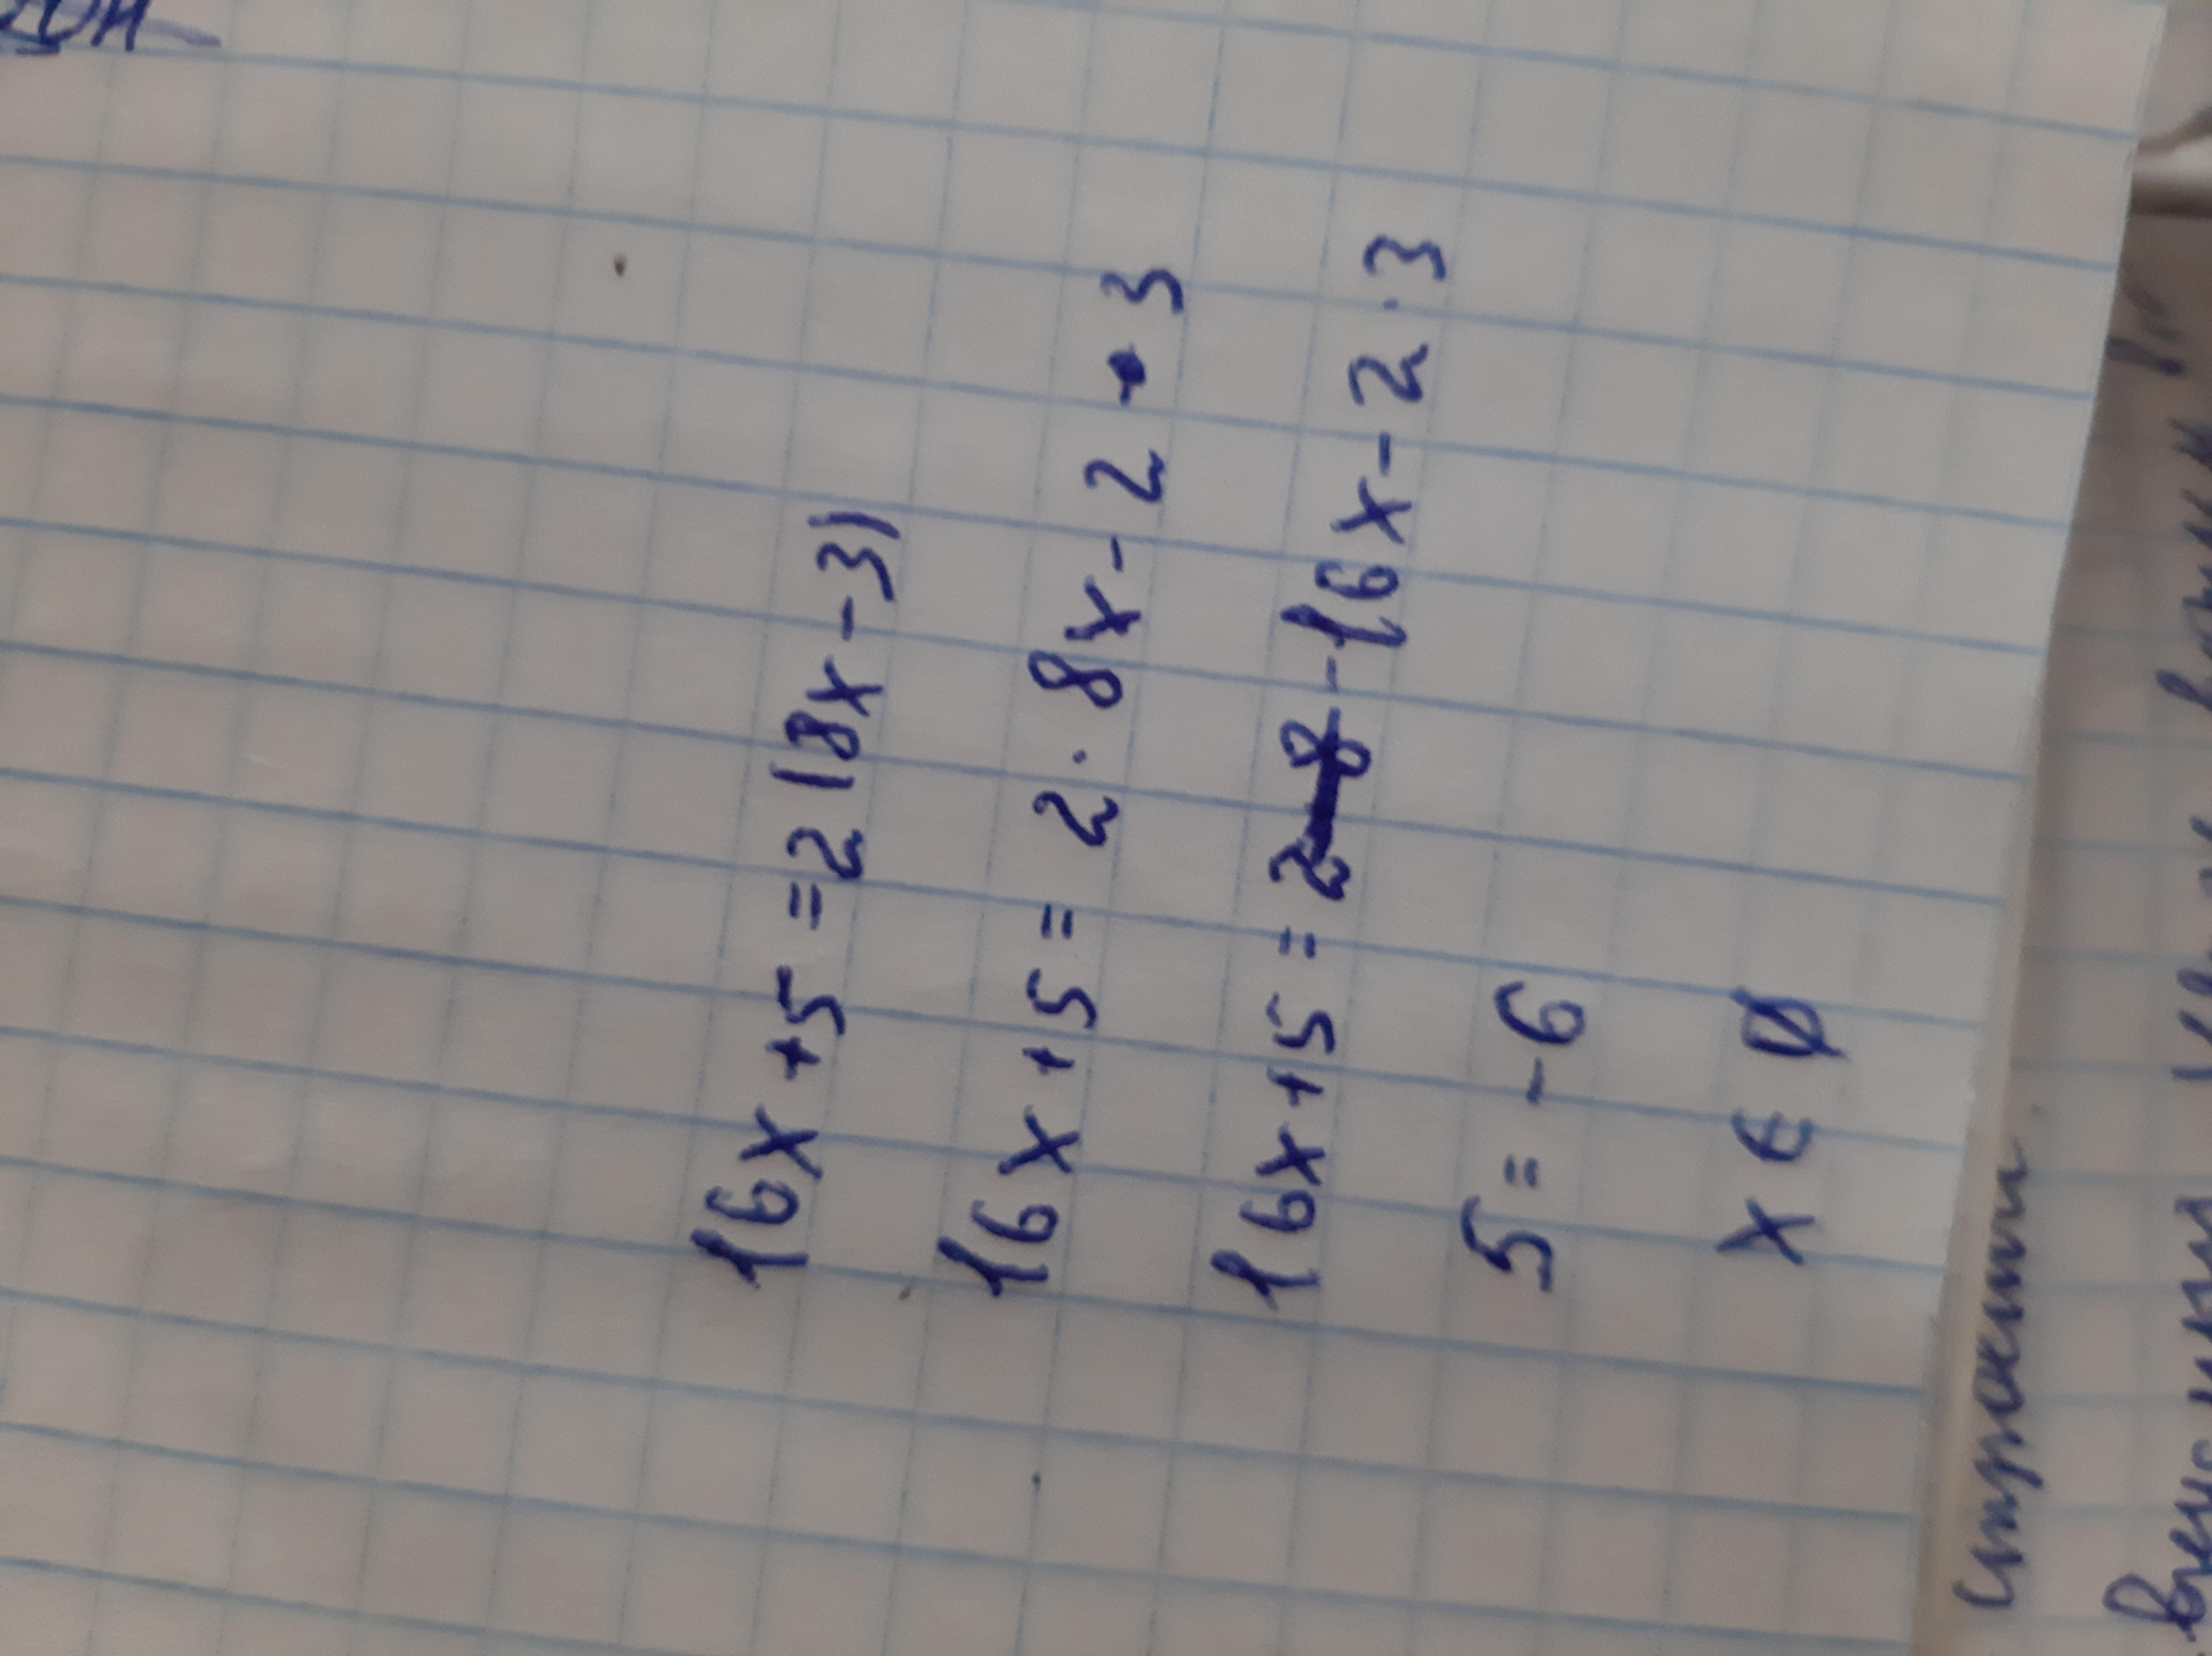 16x + 5 = 2(8x - 3)
16x + 5 = 2 · 8x - 2 · 3
16x + 5 = 16x - 2 · 3
5 = -6
x ∈ ∅